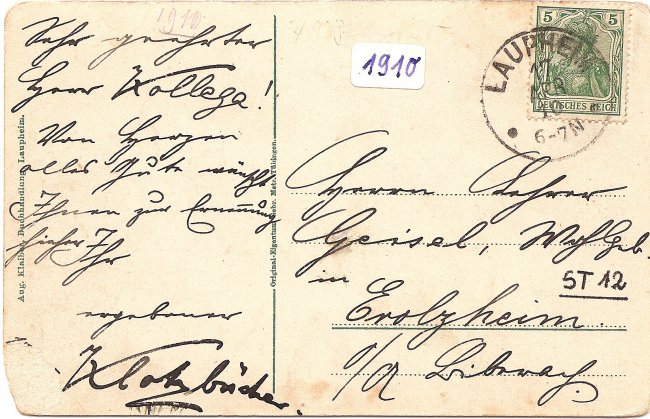 1910
Sehr geehrter
Herr Kollega!
Von Herzen
alles Gute wünscht
Ihnen zur Ernennung
hieher Ihr
ergebener
Klotzbücher.
Aug. Klaiber, Buchhandlung, Laupheim.
Original-Eigentum Gebr. Metz, Tübingen.
1910
5 5
DEUTSCHES REICH
LAUPHEIM
6-7N
Herrn Lehrer
Geisel, Wohlgeb.
in
ST 12
Erolzheim
O/A Biberach.